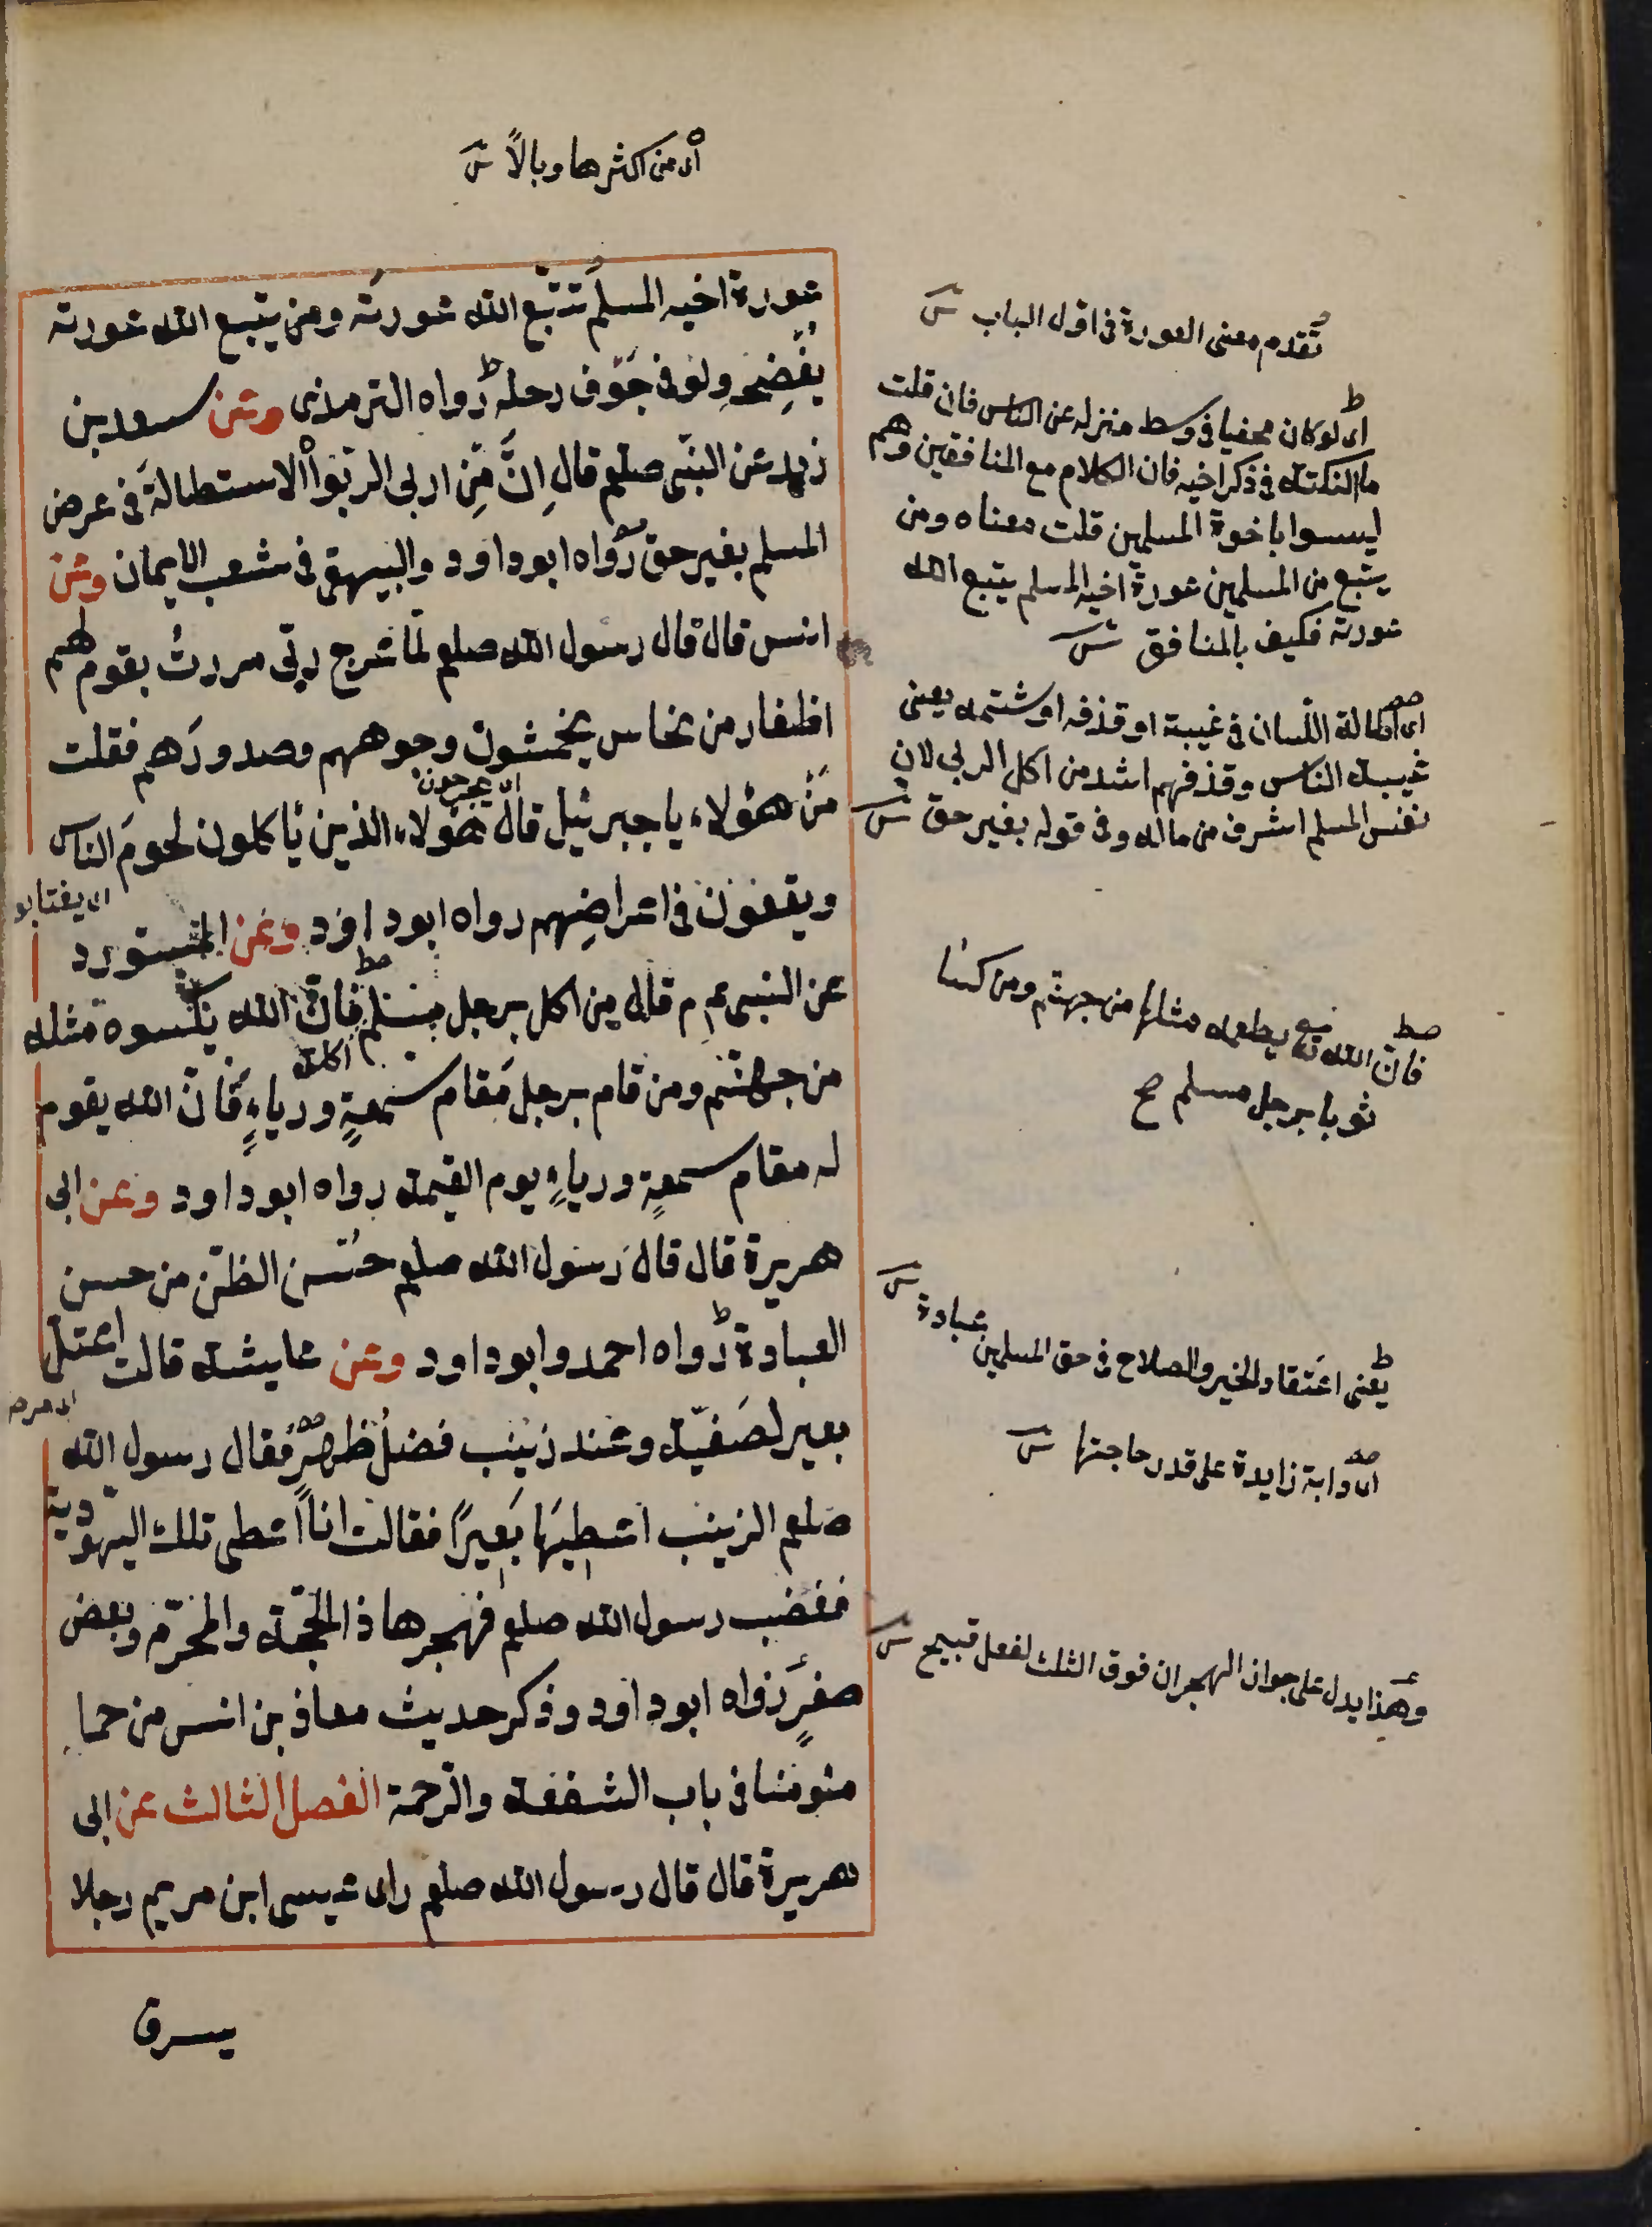 أى من اكثرها وبالًا ش
عورة اخيه المسلم تتبع الله عورته ومن يتبع الله عورته
يفضحه ولو فى جوف رحله رواه الترمذى وعن سعد بن
زيد عن النبى صلعم قال اِنَّ مِن اربى الربوا الاستطالةَ فى عرض
المسلم بغير حق رواه ابوداود والبيهقى فى شعب الايمان وعن
انس قال قال رسول الله صلعم لمّا عرج ربّى مررتُ بقوم لهم
اظفار من نحاس يخمشون وجوههم وصدورَهم فقلت
اى يجرحون
مَنْ هؤلاء يا جبرئيل قال هؤلاء الذين ياكلون لحوم الناس
اى يغتابو
ويقعون فى اعراضِهم رواه ابوداود وعن المستورد
عن النبى عم قال من اكل برجل مسلم فانّ الله يكسوه مثله
اكلة
من جهنّم ومن قام برجل مَقام سمعةٍ ورياءٍ فَانّ الله يقوم
له مقام سمعةٍ ورياءٍ يوم القيمة رواه ابوداود وعن ابى
هريرة قال قال رسول الله صلعم حُسن الظنّ من حسن
العبادة رواه احمد وابوداود وعن عايشة قالت اعتلّ
اى مرض
بعير لصَفيّة وعند زينب فضلُ ظهرٍ فقال رسول الله
صلعم الزينب اعطِيَها بَعيرًا فقالت انا اعطى تلك اليهودية
فغضب رسول الله صلعم فهجرها ذا الحجّة والمحرّم وبعض
صفرٍ رواه ابوداود وذكر حديث معاذ بن انس من حما
مئومنا فى باب الشفقة والرّحمة الفصل الثالث عن ابى
هريرة قال قال رسول الله صلعم راى عيسى ابن مريم رجلا
يسرق
تقدم معنى العورة فى اول الباب ش
اى لو كان مخفيا فى وسط منزله عن الناس فان قلت
ما النكتة فى ذكر اخيه فان الكلام مع المنافقين وهم
ليسوا باخوة المسلمين قلت معناه ومن
يتبع من المسلمين عورة اخيه المسلم يتبع الله
عورته فكيف بالمنافق ش
اى اطالة اللسان فى غيبة او قذفه او شتمه يعنى
غيبة الناس وقذفهم اشد من اكل الربى لان
نفس المسلم اشرف من ماله وفى قوله بغير حق ش
فان الله تع يطعمه مثلها من جهنم ومن كسا
ثوبا برجل مسلم صح
يعنى اعتقاد الخير والصلاح فى حق المسلمين عبادة ش
اى دابة زايدة على قدر حاجتها ش
وهذا يدل على جواز الهجران فوق الثلث لفعل قبيح ش